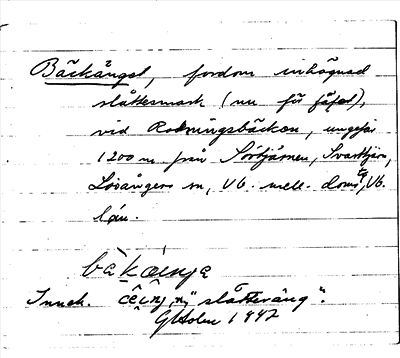 Bäckänget, fordom inhägnad
slåttesmark (nu för fäfot),
vid Rodningsbäcken, ungefär
1200 m från Sörtjärnen, Svarttjärn,
Lövångers sn, Vb. mell. doms, Vb.
län.
bäkäinja
Inneh. "slåtteräng".
GHolm 1942